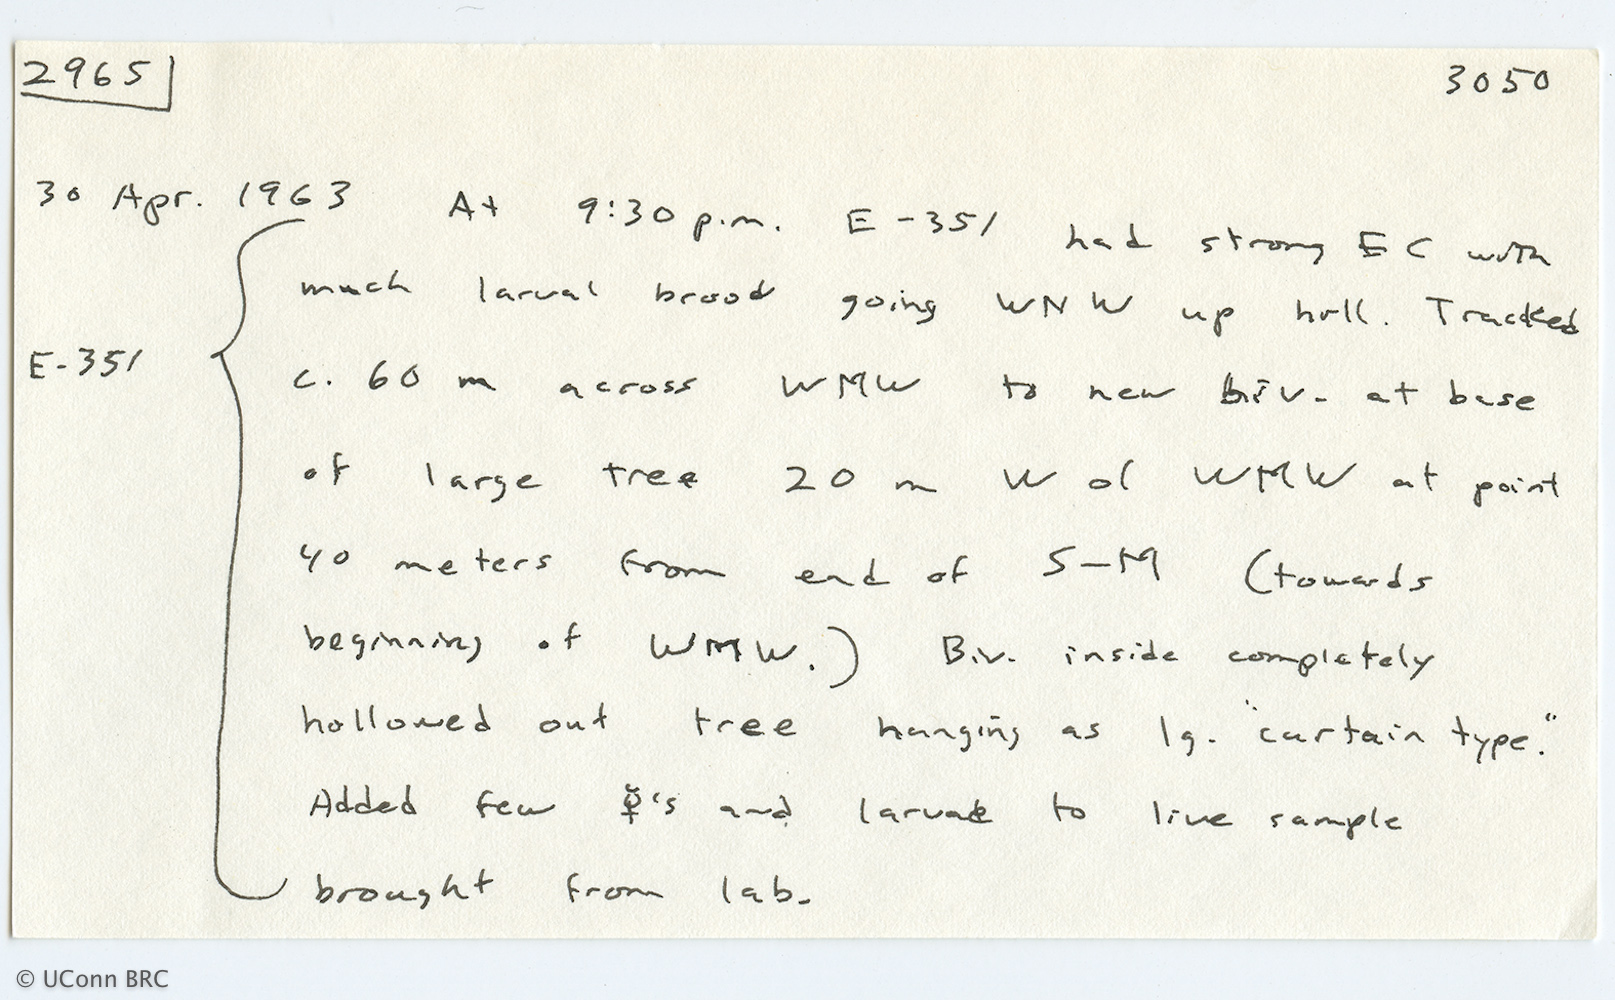 2965 3050
30 Apr. 1963 At 9:30 p.m. E-351 had strong EC with
much larval brood going WNW up hill. Tracked
E-351 c. 60 m across WMW to new biv. at base
of large tree 20 m W of WMW at point
40 meters from end of S-M (towards
beginning of WMW.) Biv. inside completely
hollowed out tree hanging as lg. "curtain type."
Added few ☿'s and larvae to live sample
brought from lab.
© UConn BRC